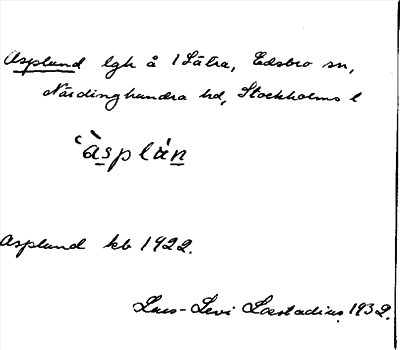 Asplund lgh å 1 Sätra, Edsbro sn,
Närdinghundra hd, Stockholms l
`àsplán
Asplund kb 1922.
Lars-Levi Læstadius 1932.